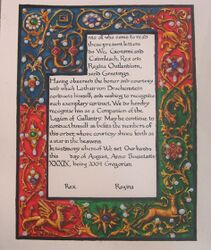 Unto all who come to read
these present letters
do We, Giovanni and
Caterinleach, Rex ante
Regina Outlandium,
send Greetings.
Having observed the honor and courtesy
with which Lothar von Drachenstein
conducts himself, and wishing to recognize
such exemplary conduct, We do hereby
recognize him as a Companion of the
Legion of Gallantry. May he continue to
conduct himself as befits the members of
this order, whose courtesy shines forth as
a star in the heavens.
In testimony whereof We set Our hands
this day of August, Anno Societatis
XXXIX, being 2004 Gregorian.
Rex Regina